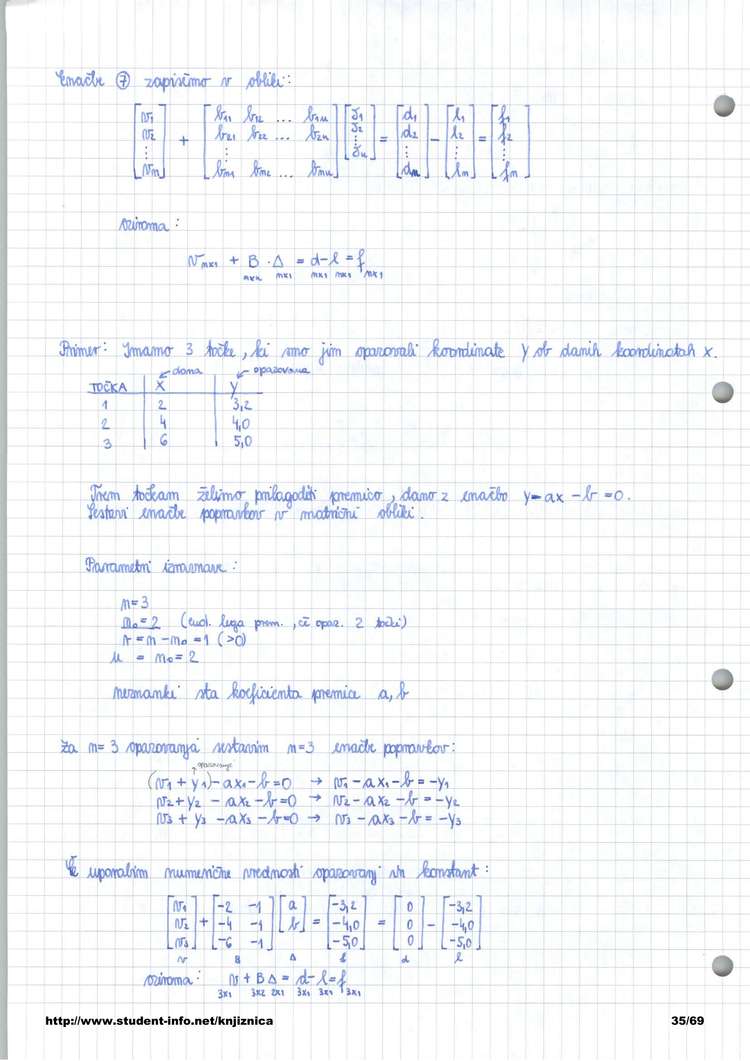 Enačbe ⑦ zapišemo v obliki:
[v1 v2 ⋮ vn] + [b11 b12 ... b1u b21 b22 ... b2u ⋮ bn1 bn2 ... bnu] [δ1 δ2 ⋮ δu] = [d1 d2 ⋮ dn] - [l1 l2 ⋮ ln] = [f1 f2 ⋮ fn]
oziroma:
v n×1 + B n×u · Δ u×1 = d n×1 - l n×1 = f n×1
Primer: Imamo 3 točke, ki smo jim opazovali koordinate y ob danih koordinatah x.
dana opazovana
TOČKA x y
1 2 3,2
2 4 4,0
3 6 5,0
Trem točkam želimo prilagoditi premico, dano z enačbo y - ax - b = 0.
Sestavi enačbe popravkov v matrični obliki.
Parametri izravnave:
n=3
n0=2 (enol. lega prem., če opaz. 2 točki)
r = n - n0 = 1 (>0)
u = n0 = 2
neznanki sta koeficienta premice a, b
Za n=3 opazovanja sestavim n=3 enačbe popravkov:
opazovanje
(v1 + y1) - ax1 - b = 0 → v1 - ax1 - b = -y1
v2 + y2 - ax2 - b = 0 → v2 - ax2 - b = -y2
v3 + y3 - ax3 - b = 0 → v3 - ax3 - b = -y3
uporabim numerične vrednosti opazovanj in konstant:
[v1 v2 v3] + [-2 -1 -4 -1 -6 -1] [a b] = [-3,2 -4,0 -5,0] = [0 0 0] - [-3,2 -4,0 -5,0]
v B Δ f d l
oziroma: v + B Δ = d - l = f
3x1 3x2 2x1 3x1 3x1 3x1
http://www.student-info.net/knjiznica 35/69